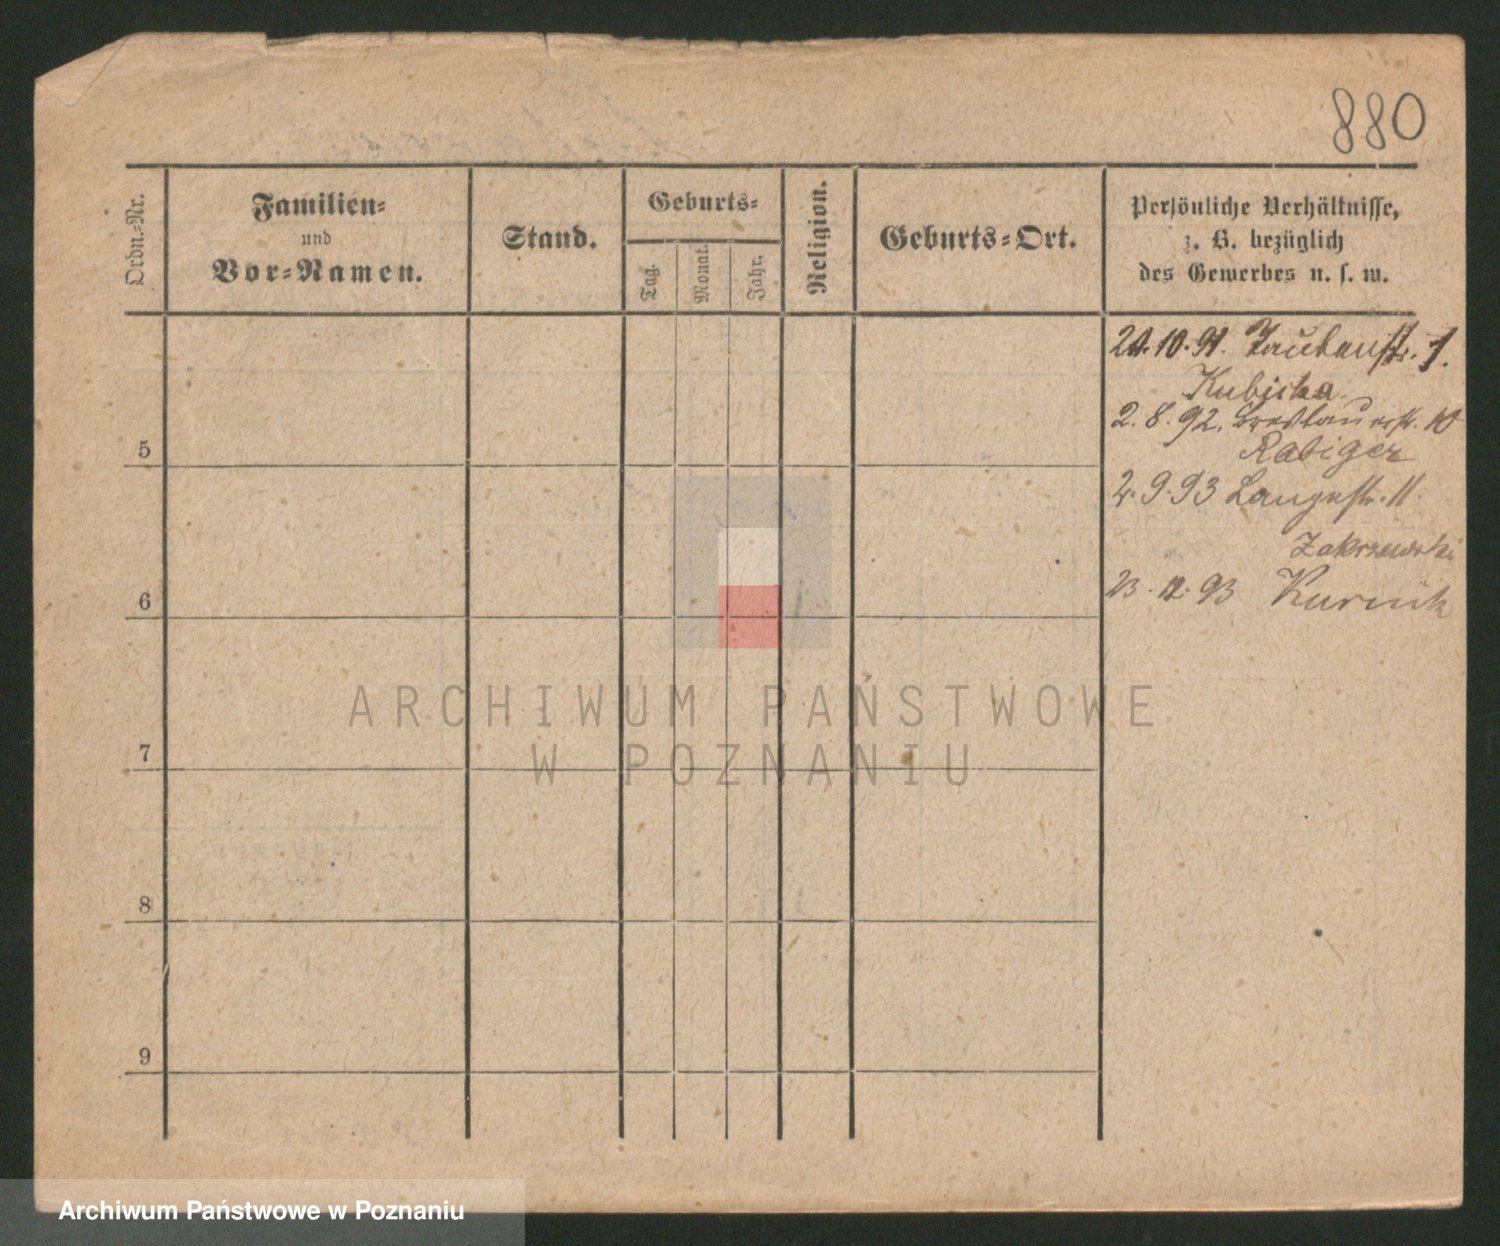 880
Ordn.-Nr.
Familien-
und
Vor-Namen.
Stand.
Geburts-
Tag.
Monat.
Jahr.
Religion.
Geburts-Ort.
Persönliche Verhältnisse,
z. B. bezüglich
des Gewerbes u. s. w.
10. 91. Taubenstr. 1.
Kubicka
2. 8. 92. Breslauerstr. 10
Rabiger
2. 9. 93 Langestr. 11.
Zakrzewski
12. 93 Kurnik
5
6
7
8
9
ARCHIWUM PAŃSTWOWE
W POZNANIU
Archiwum Państwowe w Poznaniu